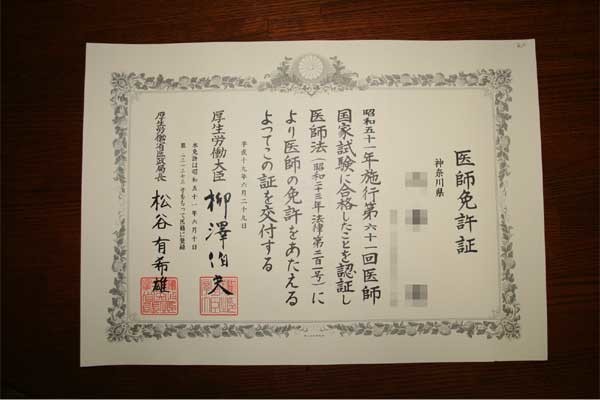 医師免許証
神奈川県
昭和五十一年施行第六十一回医師
国家試験に合格したことを認証し
医師法（昭和二十三年法律第二百一号）に
より医師の免許をあたえる
よってこの証を交付する
平成十九年六月二十九日
厚生労働大臣 柳澤伯夫
本免許は昭和五十一年六月十日
をもって医籍に登録
厚生労働省医政局長 松谷有希雄